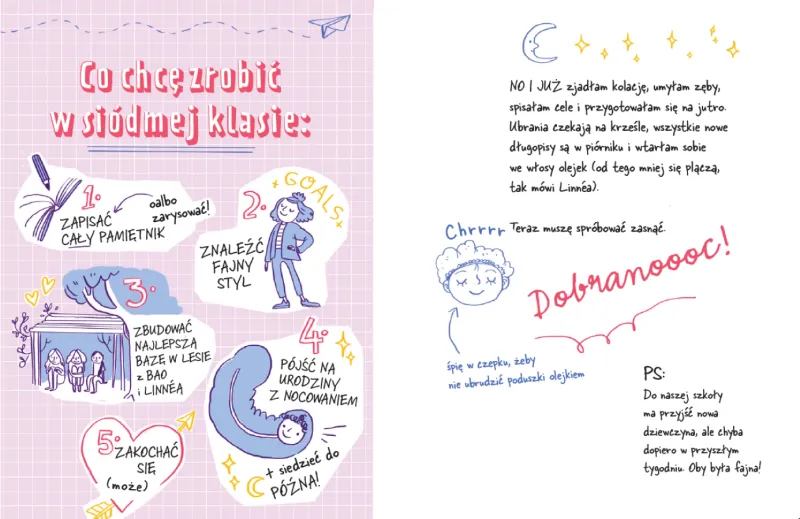 Co chcę zrobić
w siódmej klasie:
1.
ZAPISAĆ
CAŁY PAMIĘTNIK
oalbo
zarysować!
GOALS
2.
ZNALEŹĆ
FAJNY
STYL
3.
ZBUDOWAĆ
NAJLEPSZĄ
BAZĘ W LESIE
z BAO
i LINNÉA
4.
PÓJŚĆ NA
URODZINY
Z NOCOWANIEM
+ siedzieć do
PÓŹNA!
5.
ZAKOCHAĆ
SIĘ
(może)
NO I JUŻ zjadłam kolację, umyłam zęby,
spisałam cele i przygotowałam się na jutro.
Ubrania czekają na krześle, wszystkie nowe
długopisy są w piórniku i wtarłam sobie
we włosy olejek (od tego mniej się plączą,
tak mówi Linnéa).
Chrrrr
Teraz muszę spróbować zasnąć.
Dobranoooc!
śpię w czepku, żeby
nie ubrudzić poduszki olejkiem
PS:
Do naszej szkoły
ma przyjść nowa
dziewczyna, ale chyba
dopiero w przyszłym
tygodniu. Oby była fajna!